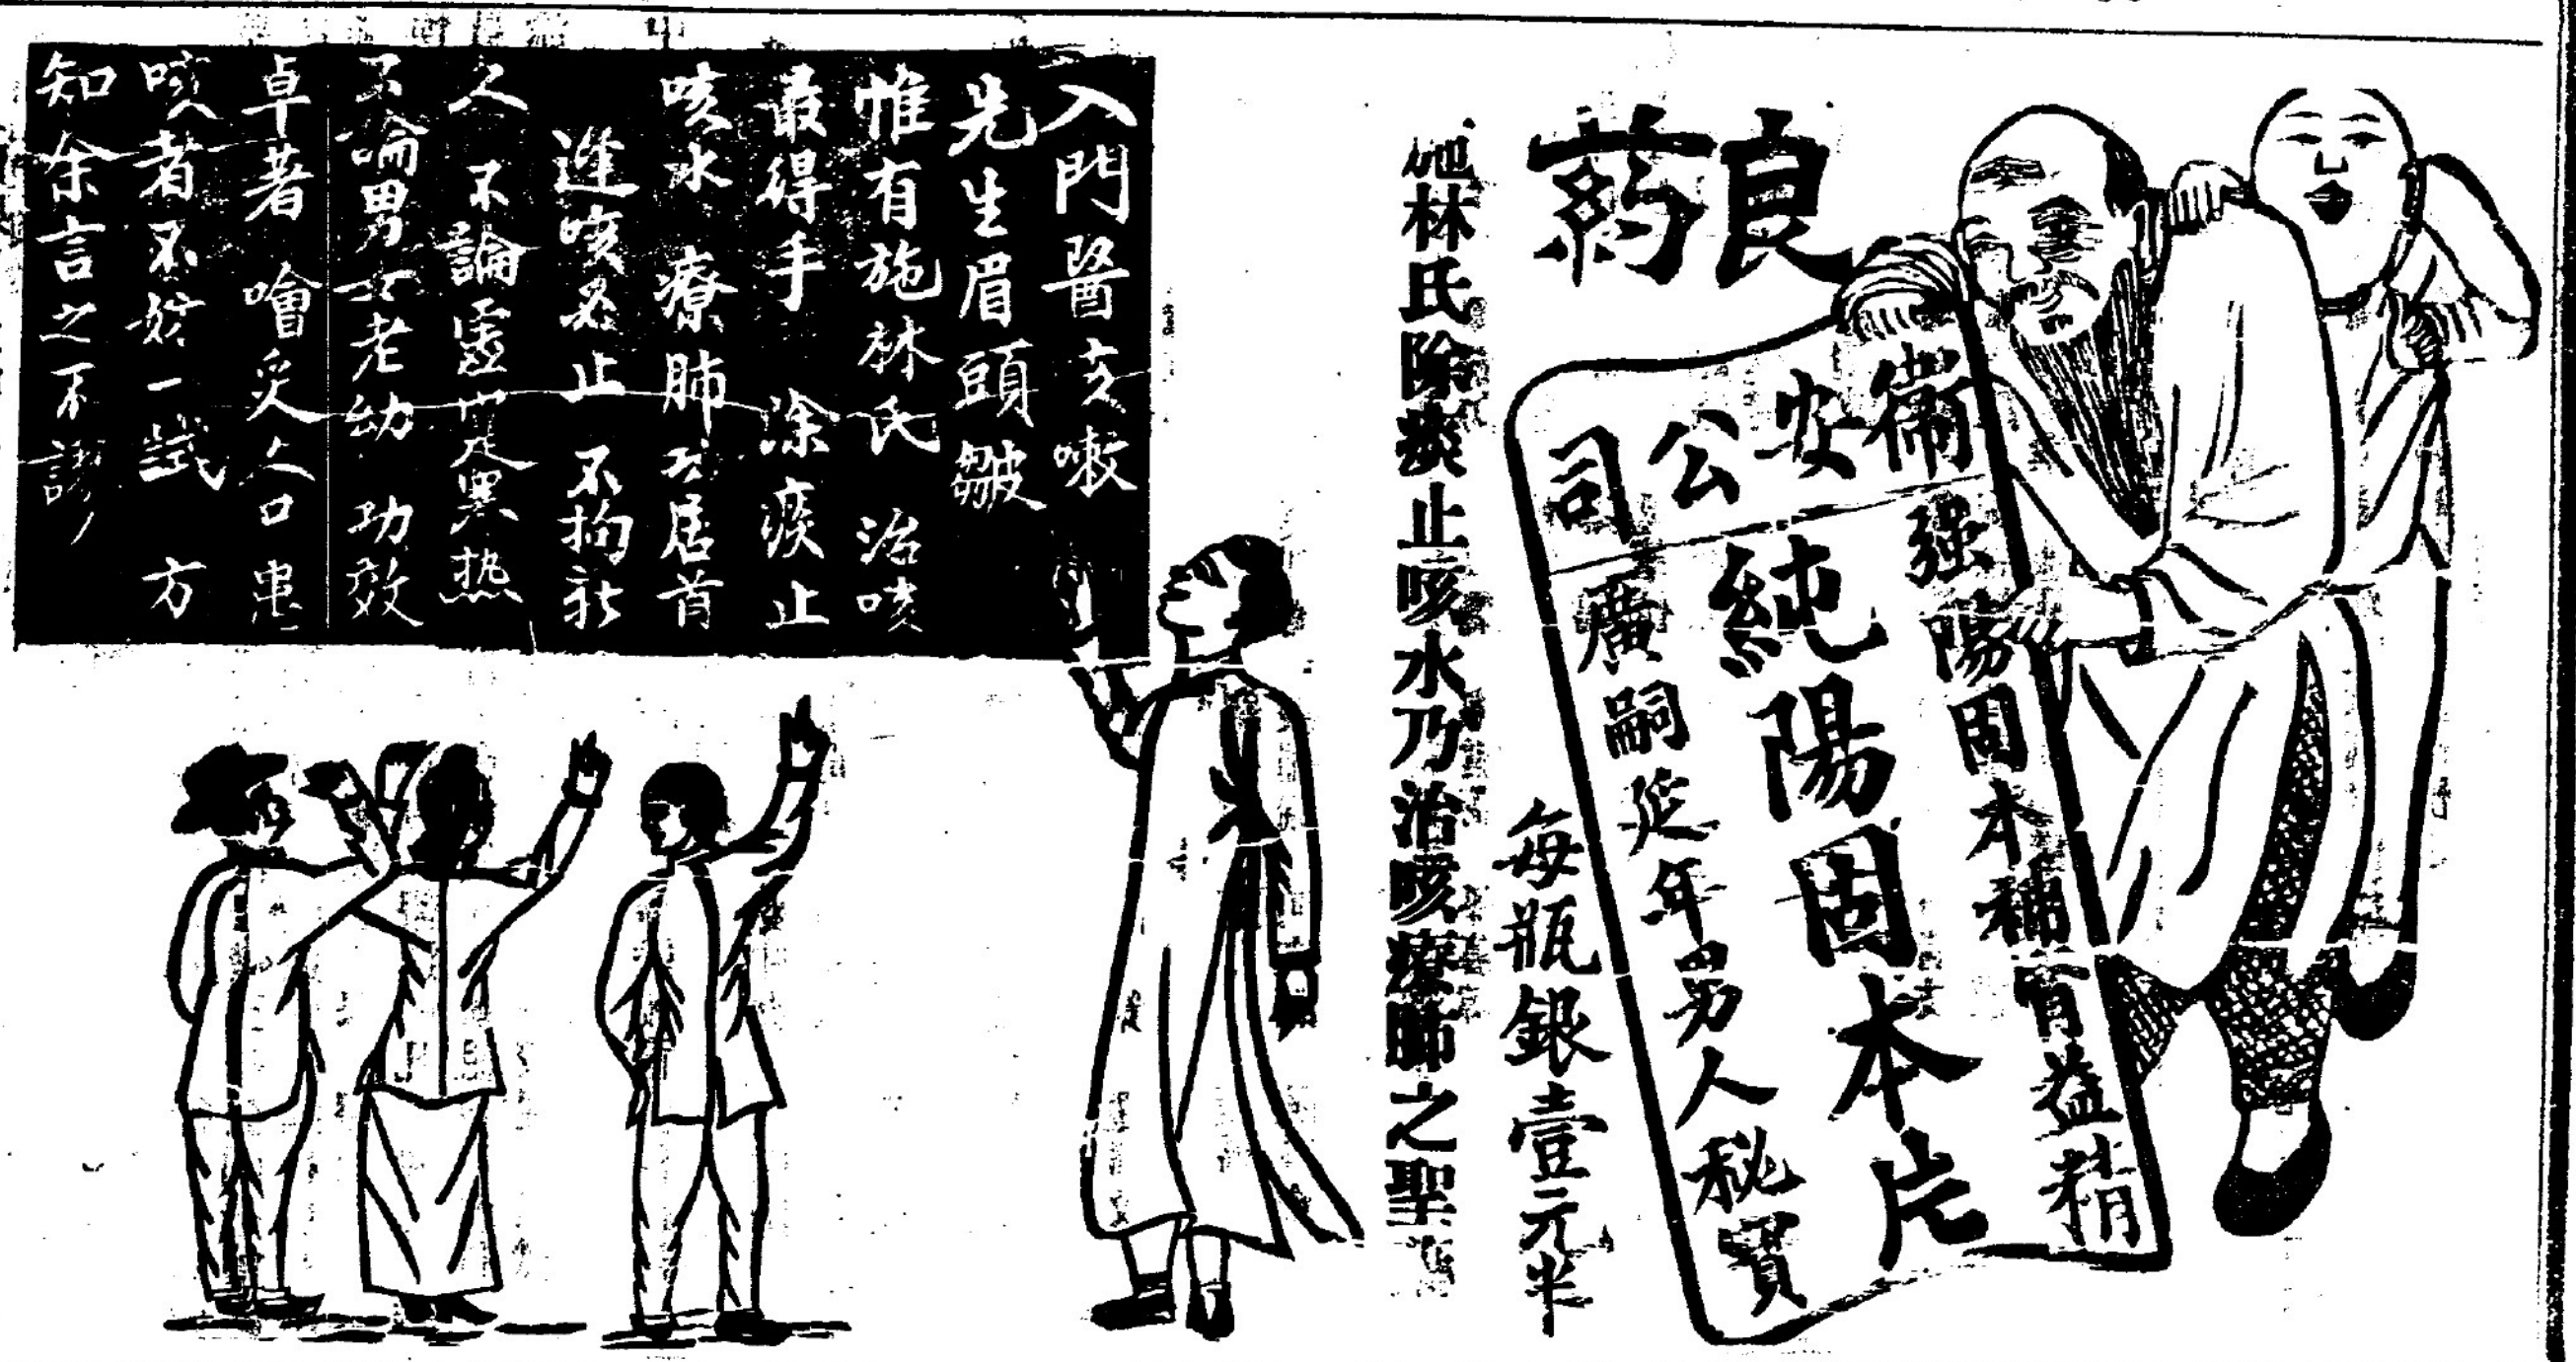 良药
衛安公司
强陽固本補腎益精
純陽固本片
廣嗣延年男人秘寶
每瓶銀壹元半
施林氏除痰止咳水乃治咳療肺之聖
入門醫咳嗽
先生眉頭皺
惟有施林氏 治咳
最得手 除痰止
咳水 療肺功居首
逢咳必止 不拘新
久 不論虛寒熱
不論男女老幼 功效
卓著 噲炙人口 患
咳者不妨一試 方
知余言之不謬